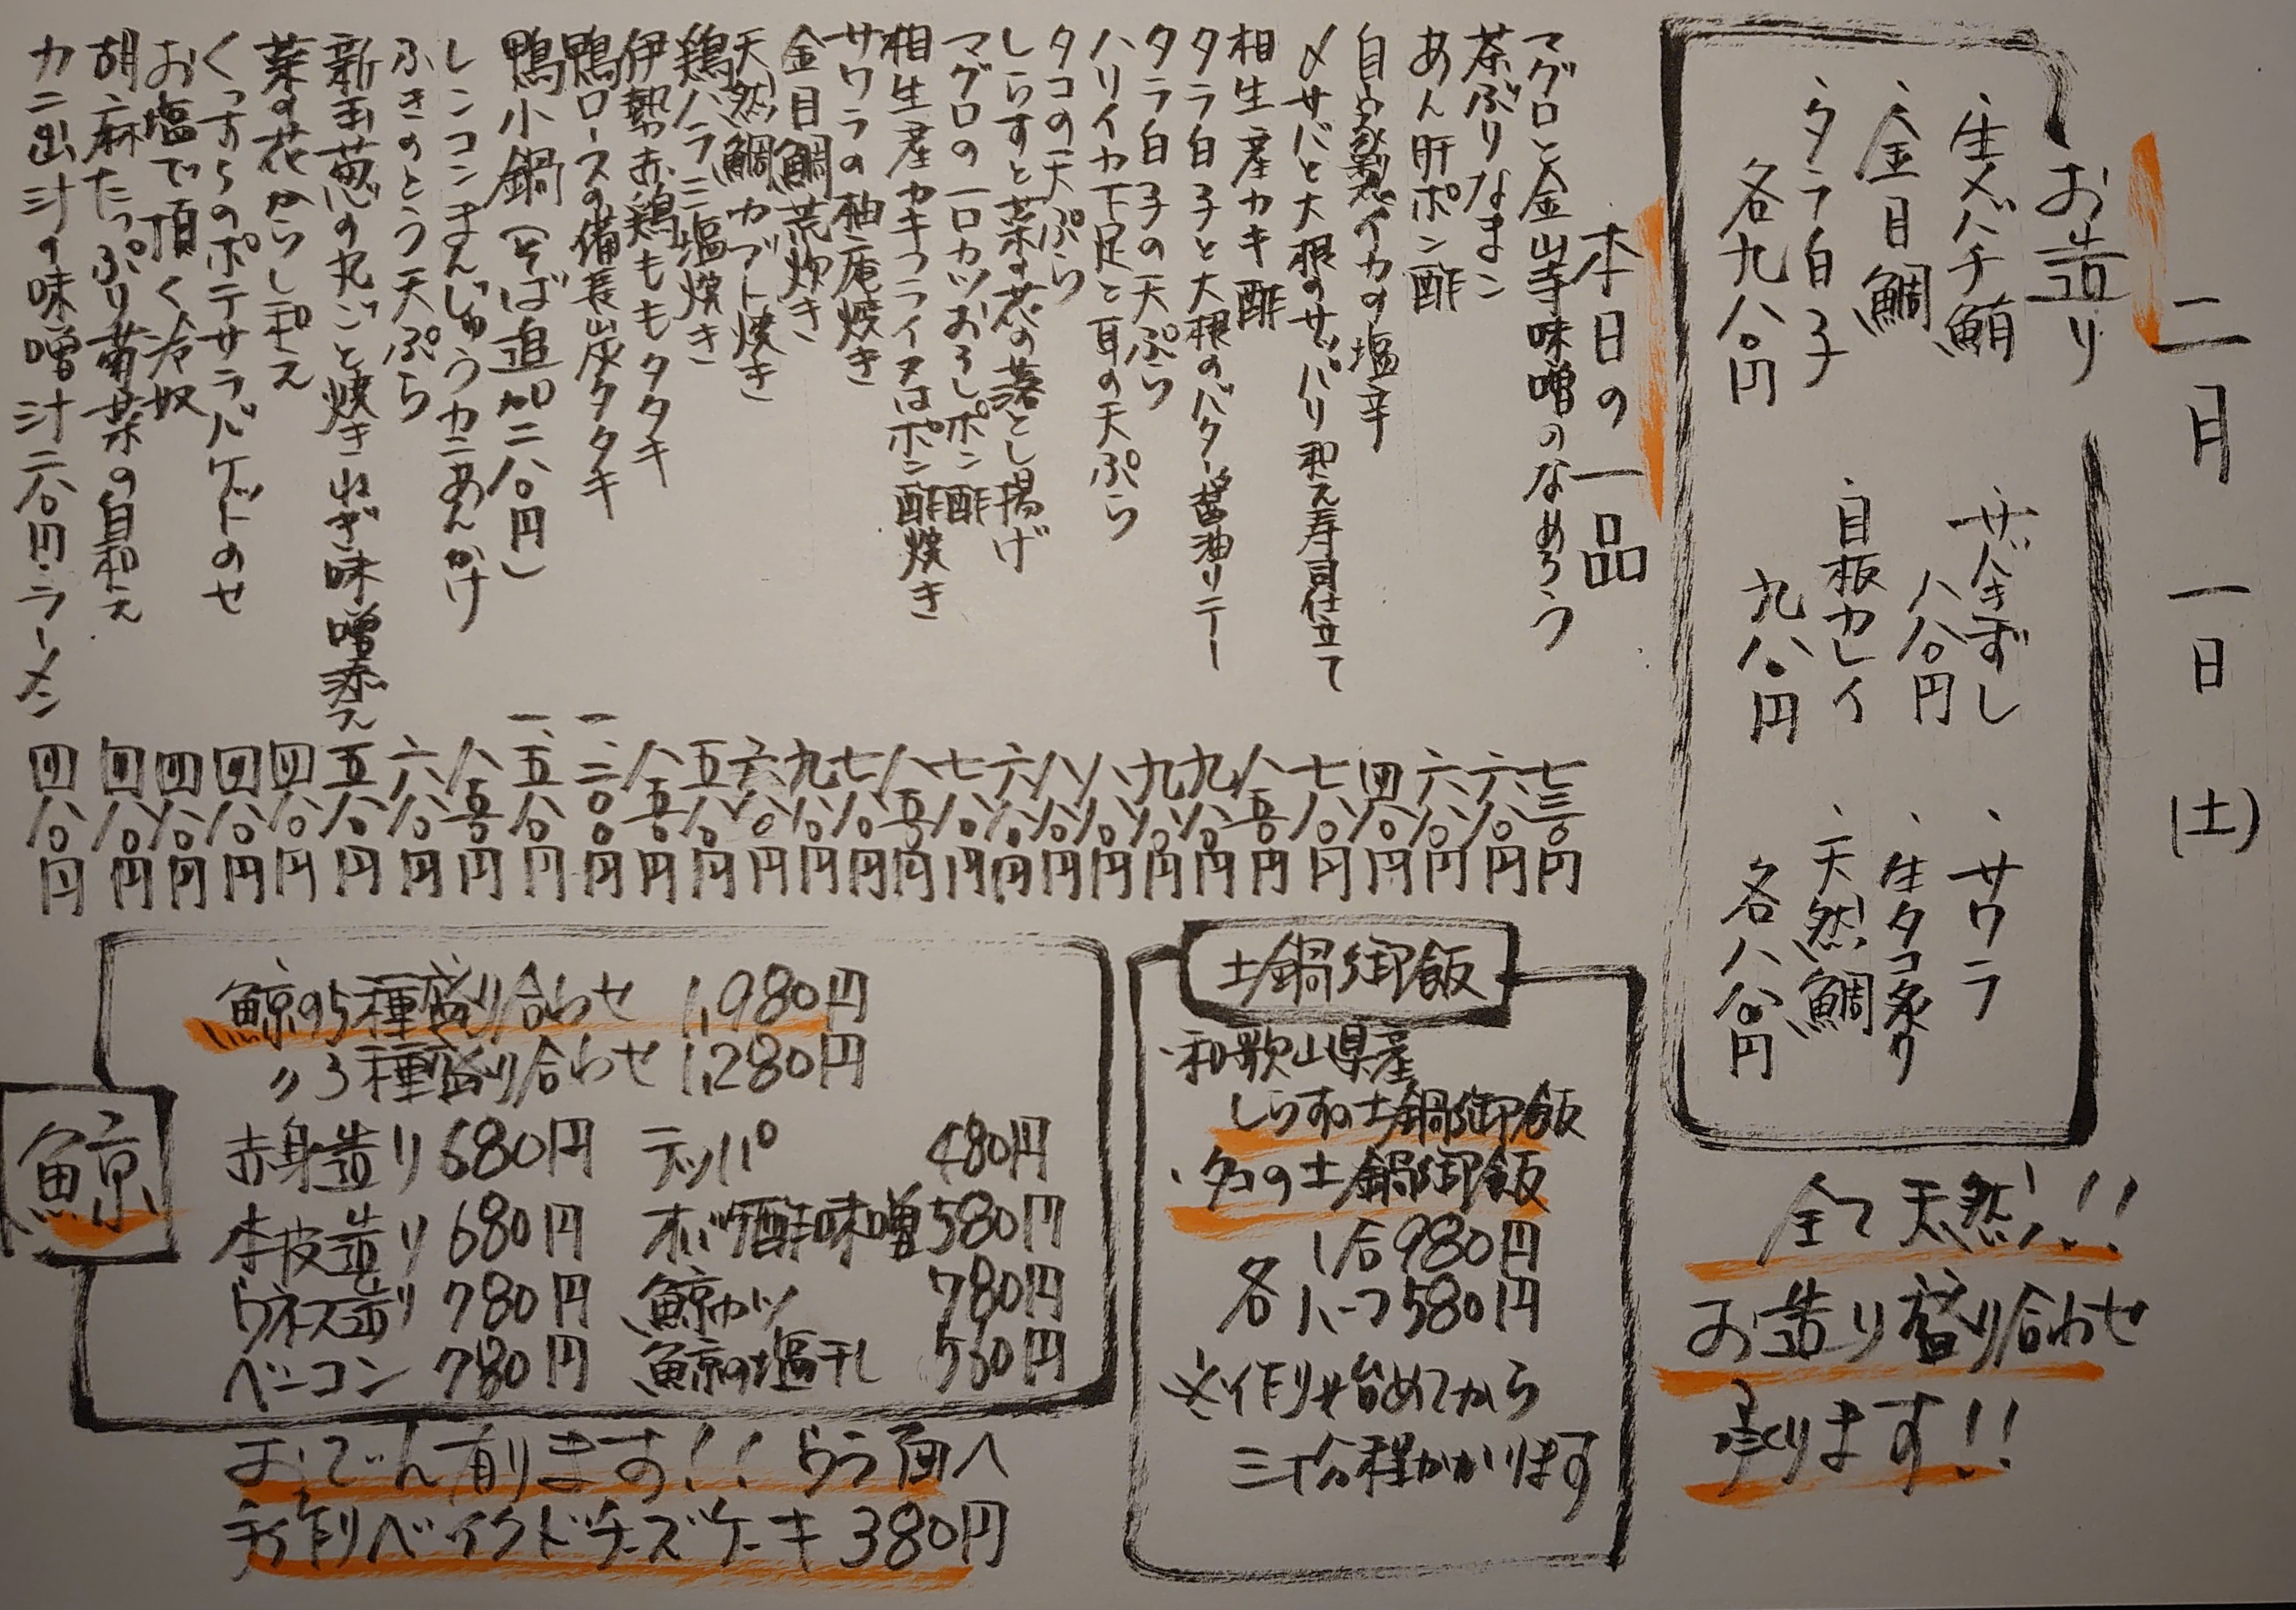 二月一日(土)
お造り
・生メバチ鮪
・金目鯛
・タラ白子
各九八〇円
・サバきずし
八八〇円
・自板カレイ
九八〇円
・サワラ
・生タコ炙り
・天然鯛
各八八〇円
全て天然!!
お造り盛り合わせ
承ります!!
本日の一品
マグロと金山寺味噌のなめろう 七三〇円
茶ぶりなまこ 六八〇円
あん肝ポン酢 六八〇円
自家製イカの塩辛 四八〇円
〆サバと大根のサッパリ和え寿司仕立て 七八〇円
相生産カキ酢 八五〇円
タラ白子と大根のバター醤油ソテー 九八〇円
タラ白子の天ぷら 九八〇円
ハリイカ下足と耳の天ぷら 八八〇円
タコの天ぷら 八八〇円
しらすと菜の花の落とし揚げ 六八〇円
マグロの一口カツおろしポン酢 七八〇円
相生産カキフライ又はポン酢焼き 八五〇円
サワラの柚庵焼き 七八〇円
金目鯛荒炊き 九八〇円
天然鯛カブト焼き 六八〇円
鶏ハラミ塩焼き 五八〇円
伊勢赤鶏ももタタキ 八五〇円
鴨ロースの備長炭タタキ 一、二〇〇円
鴨小鍋(そば追加二八〇円) 一、五八〇円
レンコンまんじゅうカニあんかけ 八五〇円
ふきのとう天ぷら 六八〇円
新玉葱の丸ごと焼きねぎ味噌添え 五八〇円
菜の花からし和え 四八〇円
くっすらのポテサラバゲットのせ 四八〇円
お塩で頂く冷奴 四八〇円
胡麻たっぷり菊菜の白和え 四八〇円
カニ出汁の味噌汁二八〇円・ラーメン 四八〇円
土鍋御飯
・和歌山県産
しらすの土鍋御飯
・タコの土鍋御飯
1合980円
各ハーフ580円
※作り始めてから
三十分程かかります
鯨
鯨の5種盛り合わせ 1,980円
〃3種盛り合わせ 1,280円
赤身造り 680円 テッパ 480円
本皮造り 680円 オバケ酢味噌 580円
ウネス造り 780円 鯨カツ 780円
ベーコン 780円 鯨の塩干し 530円
おでん有ります!! ウラ面へ
手作りベイクドチーズケーキ 380円